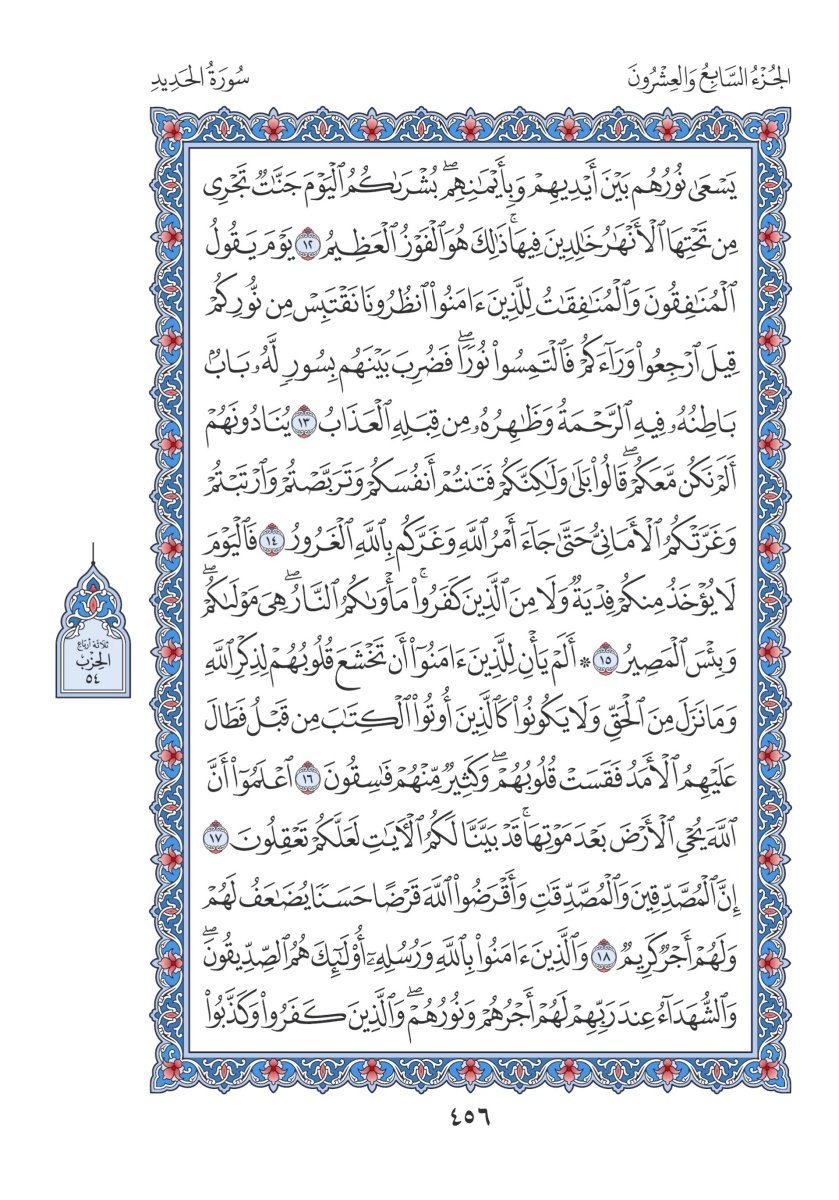 الجُزْءُ السَّابِعُ وَالعِشْرُونَ
سُورَةُ الحَدِيدِ
يَسْعَىٰ نُورُهُم بَيْنَ أَيْدِيهِمْ وَبِأَيْمَٰنِهِمۖ بُشْرَىٰكُمُ ٱلْيَوْمَ جَنَّٰتٌ تَجْرِى
مِن تَحْتِهَا ٱلْأَنْهَٰرُ خَٰلِدِينَ فِيهَاۚ ذَٰلِكَ هُوَ ٱلْفَوْزُ ٱلْعَظِيمُ ١٢ يَوْمَ يَقُولُ
ٱلْمُنَٰفِقُونَ وَٱلْمُنَٰفِقَٰتُ لِلَّذِينَ ءَامَنُوا۟ ٱنظُرُونَا نَقْتَبِسْ مِن نُّورِكُمْ
قِيلَ ٱرْجِعُوا۟ وَرَآءَكُمْ فَٱلْتَمِسُوا۟ نُورًاۖ فَضُرِبَ بَيْنَهُم بِسُورٍ لَّهُۥ بَابٌۢ
بَاطِنُهُۥ فِيهِ ٱلرَّحْمَةُ وَظَٰهِرُهُۥ مِن قِبَلِهِ ٱلْعَذَابُ ١٣ يُنَادُونَهُمْ
أَلَمْ نَكُن مَّعَكُمْۖ قَالُوا۟ بَلَىٰ وَلَٰكِنَّكُمْ فَتَنتُمْ أَنفُسَكُمْ وَتَرَبَّصْتُمْ وَٱرْتَبْتُمْ
وَغَرَّتْكُمُ ٱلْأَمَانِىُّ حَتَّىٰ جَآءَ أَمْرُ ٱللَّهِ وَغَرَّكُم بِٱللَّهِ ٱلْغَرُورُ ١٤ فَٱلْيَوْمَ
لَا يُؤْخَذُ مِنكُمْ فِدْيَةٌ وَلَا مِنَ ٱلَّذِينَ كَفَرُوا۟ۚ مَأْوَىٰكُمُ ٱلنَّارُۖ هِىَ مَوْلَىٰكُمْۖ
وَبِئْسَ ٱلْمَصِيرُ ١٥ ۞ أَلَمْ يَأْنِ لِلَّذِينَ ءَامَنُوٓا۟ أَن تَخْشَعَ قُلُوبُهُمْ لِذِكْرِ ٱللَّهِ
وَمَا نَزَلَ مِنَ ٱلْحَقِّ وَلَا يَكُونُوا۟ كَٱلَّذِينَ أُوتُوا۟ ٱلْكِتَٰبَ مِن قَبْلُ فَطَالَ
عَلَيْهِمُ ٱلْأَمَدُ فَقَسَتْ قُلُوبُهُمْۖ وَكَثِيرٌ مِّنْهُمْ فَٰسِقُونَ ١٦ ٱعْلَمُوٓا۟ أَنَّ
ٱللَّهَ يُحْىِ ٱلْأَرْضَ بَعْدَ مَوْتِهَاۚ قَدْ بَيَّنَّا لَكُمُ ٱلْءَايَٰتِ لَعَلَّكُمْ تَعْقِلُونَ ١٧
إِنَّ ٱلْمُصَّدِّقِينَ وَٱلْمُصَّدِّقَٰتِ وَأَقْرَضُوا۟ ٱللَّهَ قَرْضًا حَسَنًا يُضَٰعَفُ لَهُمْ
وَلَهُمْ أَجْرٌ كَرِيمٌ ١٨ وَٱلَّذِينَ ءَامَنُوا۟ بِٱللَّهِ وَرُسُلِهِۦٓ أُو۟لَٰٓئِكَ هُمُ ٱلصِّدِّيقُونَۖ
وَٱلشُّهَدَآءُ عِندَ رَبِّهِمْ لَهُمْ أَجْرُهُمْ وَنُورُهُمْۖ وَٱلَّذِينَ كَفَرُوا۟ وَكَذَّبُوا۟
ثلاثة أرباع
الحِزْب
٥٤
٤٥٦